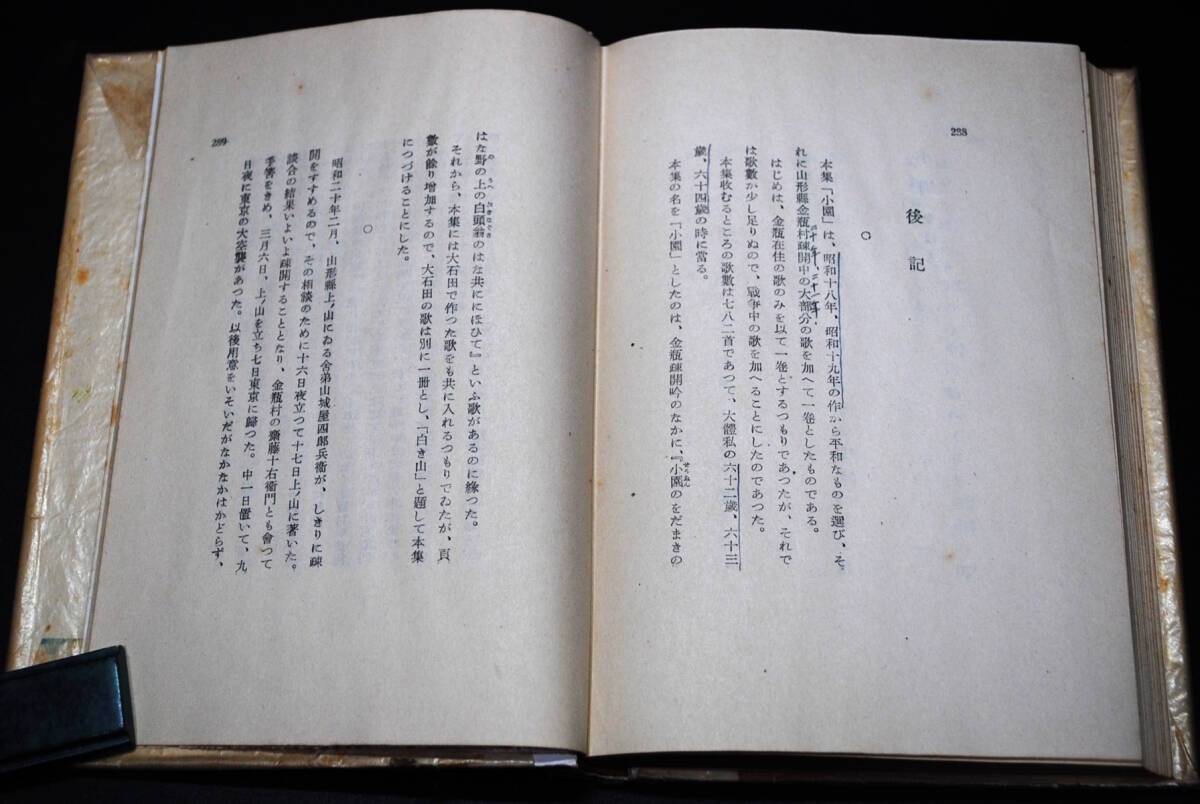 288
後記
○
本集「小園」は、昭和十八年、昭和十九年の作から平和なものを選び、そ
れに山形縣金瓶村疎開中の大部分の歌を加へて一卷としたものである。
二十年、二十一年、
はじめは、金瓶在住の歌のみを以て一卷とするつもりであつたが、それで
は歌數が少し足りぬので、戰爭中の歌を加へることにしたのであつた。
本集收むるところの歌數は七八二首であつて、大體私の六十二歲、六十三
歲、六十四歲の時に當る。
本集の名を「小園」としたのは、金瓶疎開吟のなかに、『小園のをだまきの
せうゑん
はな野の上の白頭翁のはな共ににほひて』といふ歌があるのに緣つた。
の うへ おきなぐさ
それから、本集には大石田で作つた歌をも共に入れるつもりでゐたが、頁
數が餘り增加するので、大石田の歌は別に一册とし、「白き山」と題して本集
につづけることにした。
○
昭和二十年二月、山形縣上ノ山にゐる舍弟山城屋四郎兵衞が、しきりに疎
開をすすめるので、その相談のために十六日夜立つて十七日上ノ山に著いた。
談合の結果いよいよ疎開することとなり、金瓶村の齋藤十右衞門とも會つて
手筈をきめ、三月六日、上ノ山を立ち七日東京に歸つた。中一日置いて、九
日夜に東京の大空襲があつた。以後用意をいそいだがなかなかはかどらず、
289